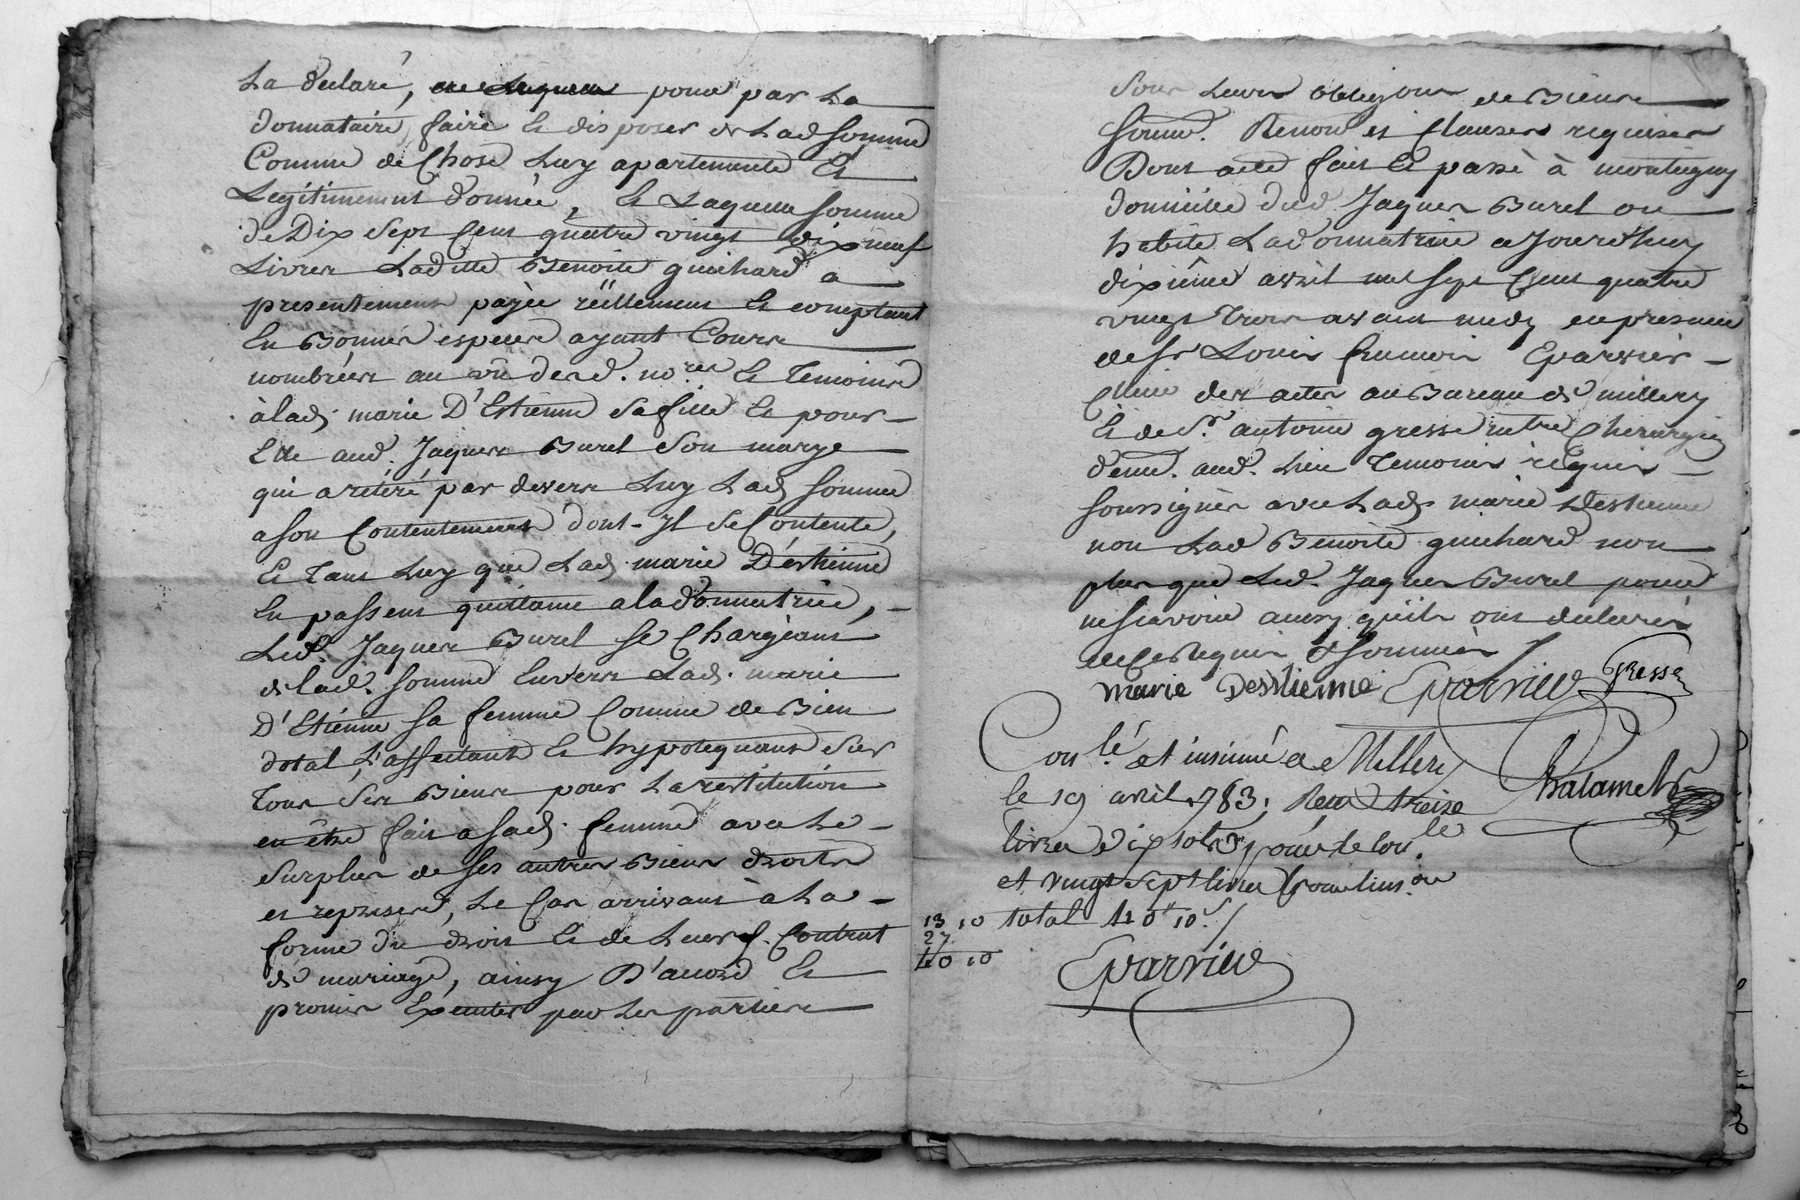 La declaré, pour par La
donnataire, faire Et disposer de Lad somme
Comme de Chose Luy apartenante Et
Legitimement donnée, Et Laquelle somme
de Dix Sept Cent quatre vingt dix neuf
Livres Laditte Benoite guichard a
presentement payée réellement Et comptant
En Bonnes especes ayant Cours
nombréés au vû desd. no.res Et Temoins
à lad. marie D'Estienne Sa fille Et pour
Elle aud. Jaques Burel Son marye
qui a retiré par devers Luy Lad. somme
a son Contentement dont Il Se Contente,
Et Tant Luy que Lad. marie D'estienne
En passent quittance a la donnatrice,
Led. Jaques Burel se Chargeant
de lad. somme Envers Lad. marie
D'Etiénne sa femme Comme de Bien
dotal L'affectant Et hypotequant Sur
Tous Ses Biens pour La restitution
en être fait a sad. femme avec Le
Surplus de ses autres Biens droits
et reprises, Le Cas arrivant à La
forme du droit Et de Leur Contrat
de mariage, ainsy D'accord Et
promis Exécuter par Les parties
Sous Leurs obligõns de Biens
soum. Renon. et Clauses requises
Dont acte fait Et passé à montagny
domicile dud. Jaques Burel ou
habite La donnatrice ajourd'huy
dixiême avril mil sept Cent quatre
vingt Trois avant midy en presence
de Sr Louis francois Eparvier
Commis des actes au Bureau de millery
Et de Sr. antoine gresse me Chirurgien
dem. aud. Lieu Temoins réquis
soussignés avec Lad. marie Destienne
non Lad Benoite guichard non
plus que Led. Jaques Burel pour
ne scavoir ainsy qu'ils ont declarés
de Ce Requis & sommés
marie Desstienne Eparvier Gresse
Con.lé et insinué a Millery
le 19 avril 1783. Reçu treize
livres dix sols pour le con.le
et vingt sept livres pour lins.on
13 10 total 40# 10s/
27
40 10
Chalamel
Eparvier